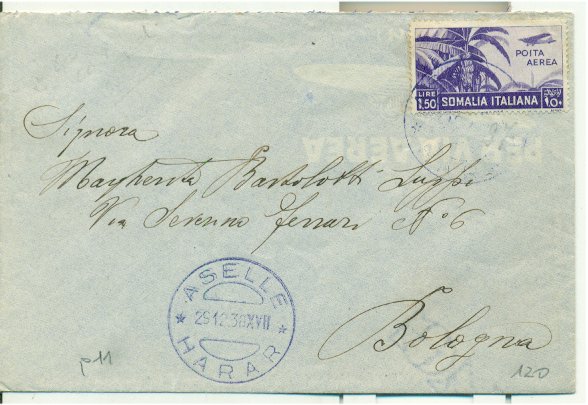 POSTA
AEREA
LIRE
1.50
SOMALIA ITALIANA
PER VIA AEREA
Signora
Margherita Bartolotti Luppi
Via Severino Ferrari No 6
Bologna
ASELLE
29.12.38XVII
HARAR
p11
120